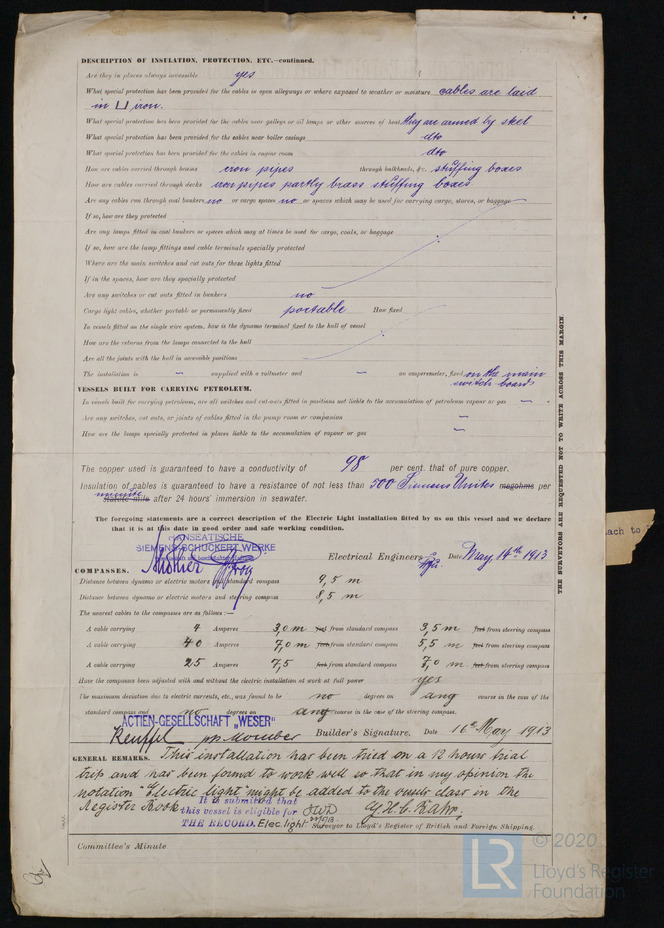 DESCRIPTION OF INSULATION, PROTECTION, ETC.—continued.
Are they in places always accessible yes
What special protection has been provided for the cables in open alleyways or where exposed to weather or moisture cables are laid
in ⊔ iron.
What special protection has been provided for the cables near galleys or oil lamps or other sources of heat they are armed by steel
What special protection has been provided for the cables near boiler casings dto
What special protection has been provided for the cables in engine room dto
How are cables carried through beams iron pipes through bulkheads, &c. stuffing boxes
How are cables carried through decks iron pipes partly brass stuffing boxes
Are any cables run through coal bunkers no or cargo spaces no or spaces which may be used for carrying cargo, stores, or baggage
If so, how are they protected
Are any lamps fitted in coal bunkers or spaces which may at times be used for cargo, coals, or baggage
If so, how are the lamp fittings and cable terminals specially protected
Where are the main switches and cut outs for these lights fitted
If in the spaces, how are they specially protected
Are any switches or cut outs fitted in bunkers no
Cargo light cables, whether portable or permanently fixed portable How fixed
In vessels fitted on the single wire system, how is the dynamo terminal fixed to the hull of vessel
How are the returns from the lamps connected to the hull
Are all the joints with the hull in accessible positions
The installation is — supplied with a voltmeter and — an amperemeter, fixed on the main
switch boards
VESSELS BUILT FOR CARRYING PETROLEUM.
In vessels built for carrying petroleum, are all switches and cut-outs fitted in positions not liable to the accumulation of petroleum vapour or gas —
Are any switches, cut outs, or joints of cables fitted in the pump room or companion —
How are the lamps specially protected in places liable to the accumulation of vapour or gas —
The copper used is guaranteed to have a conductivity of 98 per cent. that of pure copper.
Insulation of cables is guaranteed to have a resistance of not less than 500 Siemens Unites megohms per
minute
statute mile after 24 hours' immersion in seawater.
The foregoing statements are a correct description of the Electric Light installation fitted by us on this vessel and we declare
that it is at this date in good order and safe working condition.
HANSEATISCHE
SIEMENS-SCHUCKERT WERKE
Electrical Engineers Date May 14th 1913
COMPASSES.
Distance between dynamo or electric motors and standard compass 9,5 m
Distance between dynamo or electric motors and steering compass 8,5 m
The nearest cables to the compasses are as follows:—
A cable carrying 4 Amperes 3,0 m feet from standard compass 3,5 m feet from steering compass
A cable carrying 40 Amperes 7,0 m feet from standard compass 5,5 m feet from steering compass
A cable carrying 25 Amperes 7,5 feet from standard compass 7,0 m feet from steering compass
Have the compasses been adjusted with and without the electric installation at work at full power yes
The maximum deviation due to electric currents, etc., was found to be no degrees on any course in the case of the
standard compass and no degrees on any course in the case of the steering compass.
ACTIEN-GESELLSCHAFT „WESER"
Builder's Signature. Date 16th May 1913
GENERAL REMARKS. This installation has been tried on a 12 hours trial
trip and has been found to work well so that in my opinion the
notation "Electric light" might be added to the vessels class in the
Register Book
It is submitted that
this vessel is eligible for
THE RECORD. Elec. light
Surveyor to Lloyd's Register of British and Foreign Shipping.
Committee's Minute
THE SURVEYORS ARE REQUESTED NOT TO WRITE ACROSS THIS MARGIN.
ach to
© 2020
LR
Lloyd's Register
Foundation